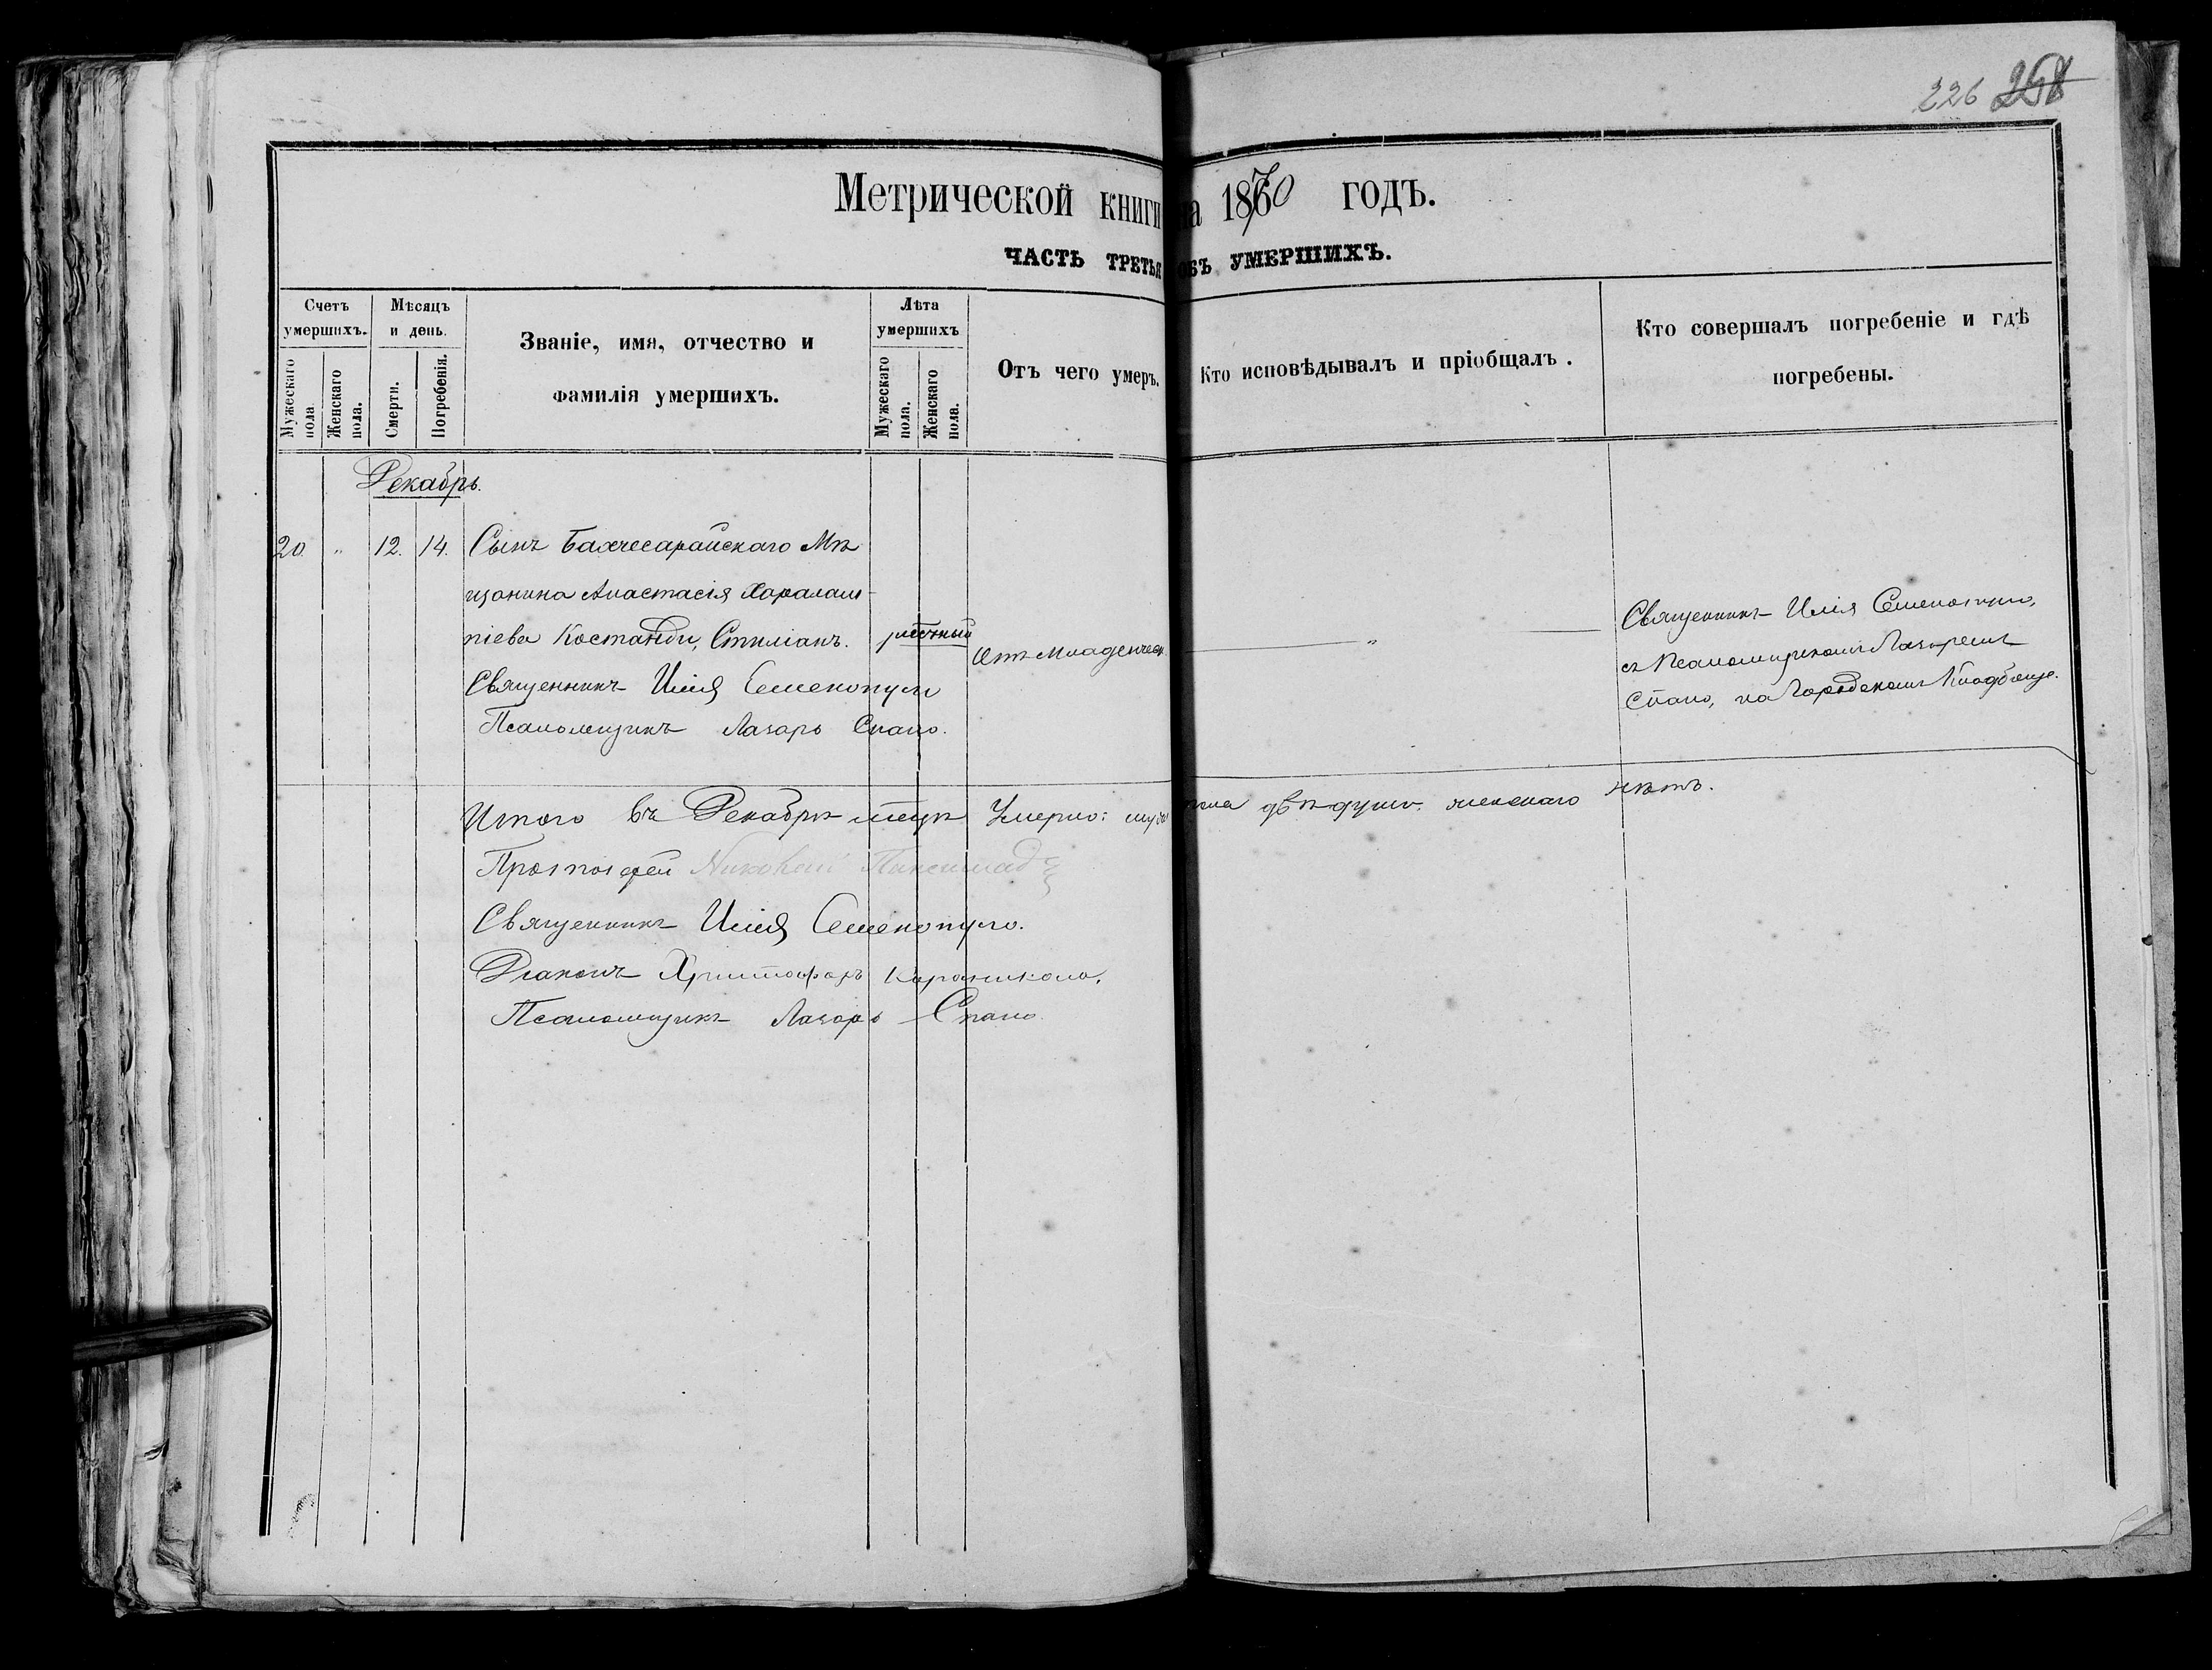 226 258
Метрической книги на 1870 годъ.
ЧАСТЬ ТРЕТЬЯ ОБЪ УМЕРШИХЪ.
Счетъ умершихъ.
Мужескаго пола
Женскаго пола.
Мѣсяцъ и день.
Смерти.
Погребенія.
Званіе, имя, отчество и
фамилія умершихъ.
Лѣта умершихъ
Мужескаго пола.
Женскаго пола.
Отъ чего умеръ.
Кто исповѣдывалъ и пріобщалъ.
Кто совершалъ погребеніе и гдѣ
погребены.
Декабрь.
20 " 12. 14. Сынъ Бахчесарайскаго Мѣ
щанина Анастасія Харалам
піева Костанди, Стиліанъ.
Священникъ Илія Семенопуло
Псаломщикъ Лазарь Спано.
Отъ Младенческ.
"
Священникъ Илія Семенопуло,
съ Псаломщикомъ Лазаремъ
Спано, на Городскомъ Кладбище.
Итого въ Декабрѣ мцѣ Умерло: муж пола двѣ души. женскаго нѣтъ.
Протоіерей Николай
Священникъ Илія Семенопуло.
Діаконъ Христофоръ Караникола.
Псаломщикъ Лазарь Спано.